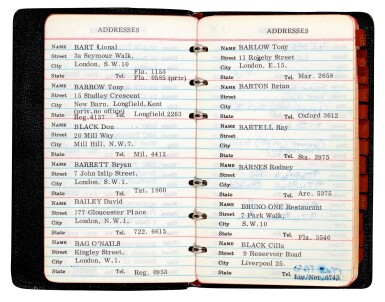 ADDRESSES
NAME BART Lional
Street 3a Seymour Walk,
City London, S.W.10
Fla. 1153
State Tel. Fla. 0585 (priv)
NAME BARROW Tony
Street 15 Studley Crescent
City New Barn, Longfield, Kent
(priv. no office)
State Reg.4157 Tel. Longfield 2263
NAME BLACK Don
Street 20 Mill Way
City Mill Hill, N.W.7.
State Tel. Mil. 4412
NAME BARRETT Bryan
Street 7 John Islip Street,
City London, S.W.1.
State Tel. Tat. 1860
NAME BAILEY David
Street 177 Gloucester Place
City London, N.W.1.
State Tel. 722. 6615
NAME BAG O'NAILS
Street Kingley Street,
City London, W.1.
State Tel. Reg. 0953
ADDRESSES
NAME BARLOW Tony
Street 11 Rogeby Street
City London, E.15.
State Tel. Mar. 2658
NAME BARTON Brian
Street
City
State Tel. Oxford 3612
NAME BARTELL Ray
Street
City
State Tel. Sta. 2975
NAME BARNES Rodney
Street
City
State Tel. Arc. 5375
NAME BRUNO ONE Restaurant
Street 7 Park Walk,
City S.W.10
State Tel. Fla. 3546
NAME BLACK Cilla
Street 9 Reservoir Road
City Liverpool 25.
State Tel.